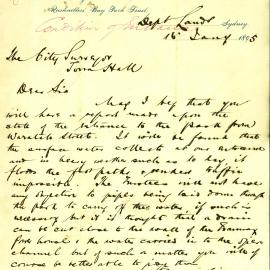 Rushcutters' Bay Park Trust,
Sydney
Dept Lands
15 Jany 1895
The City Surveyor
Town Hall
Dear Sir
May I beg that you
will have a report made upon the
state of the entrance to the park from
Waratah Street. It will be found that
the surface water collects at our entrance
and in heavy weather such as to day, it
floods the foot path & renders traffic
impossible. The trustees will not have
any objection to pipes being laid down through
the park to carry off the water if such is
necessary but it is thought that a drain
can be cut close to the wall of the Tramway
power house & the water carried in to the open
channel but of such a matter you will of
course be better able to judge than